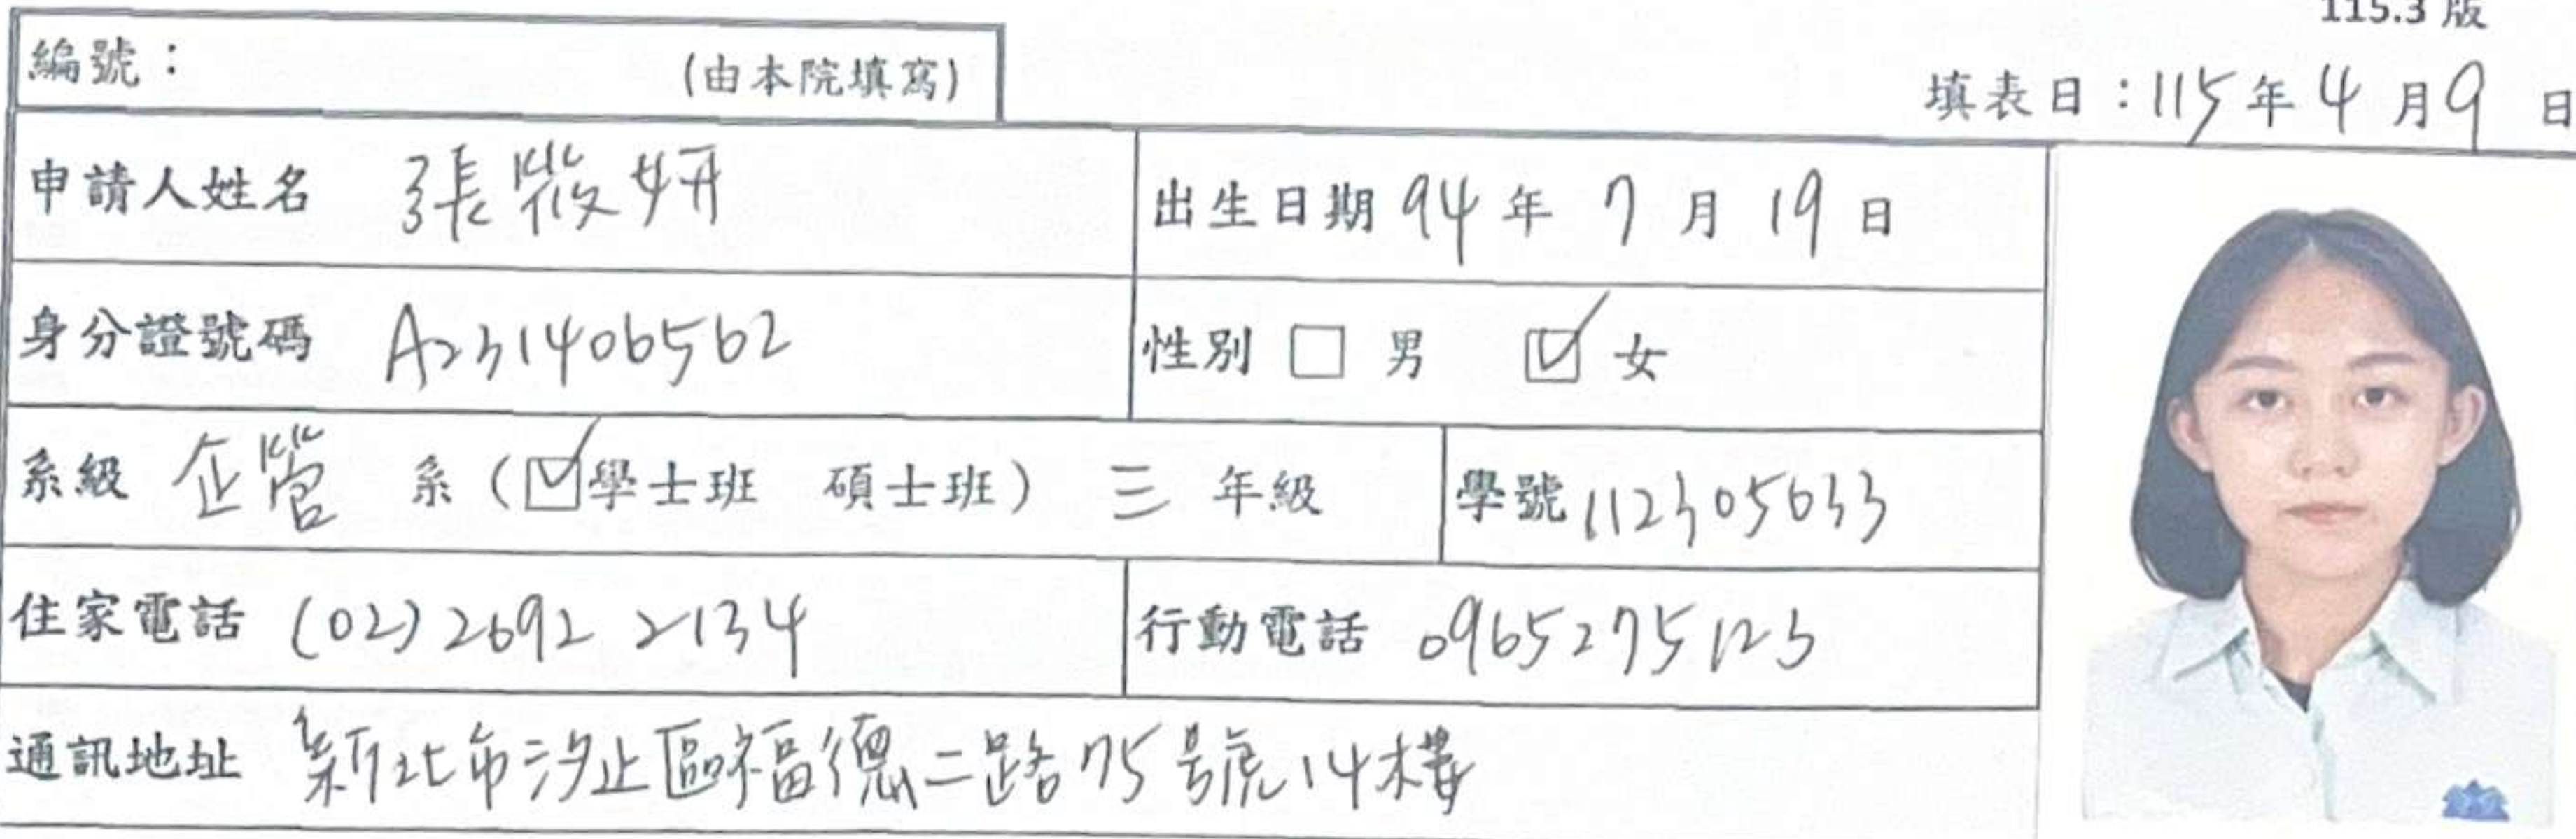 115.3 版
編號：(由本院填寫)
填表日：115年4月9日
申請人姓名 張筱妍
出生日期 94 年 7 月 19 日
身分證號碼 A231406562
性別 □ 男 ☑ 女
系級 企管 系 (☑學士班 碩士班) 三 年級
學號 112305633
住家電話 (02) 2692 2134
行動電話 0965275123
通訊地址 新北市汐止區福德二路75號14樓